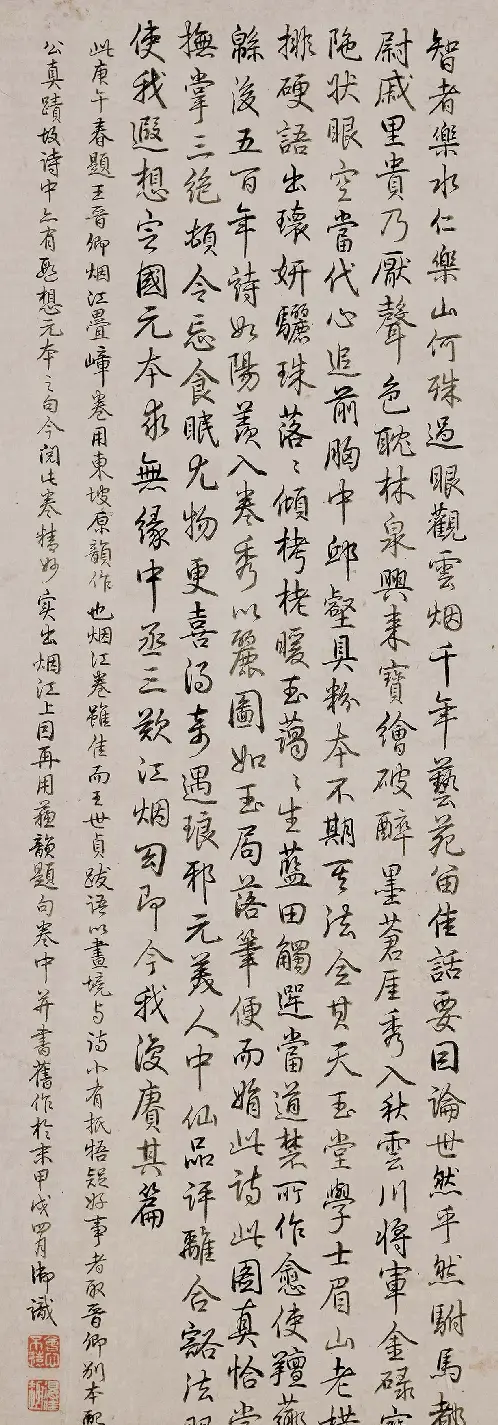 智者樂水仁樂山何殊過眼觀雲烟千年藝苑留佳話要因論世然乎然駙馬都
尉戚里貴乃厭聲色耽林泉興來寶繪破醉墨蒼厓秀入秋雲川將軍金碌
狀眼空當代心追前胸中邱壑具粉本不期其法全其天玉堂學士眉山老
排硬語出瓌妍驪珠落〻傾栲栳暖玉藹〻生藍田觸當道禁所作愈使羶薌
緜後五百年詩如陽羨入卷秀以麗圖如玉局落筆便而娟此詩此圖真恰當
撫掌三絶頓令忘食眠尤物更喜得奇遇琅邪元美人中仙品評離合豁法眼
使我遐想定國元本求無緣中丞三歎江烟句即今我復賡其篇
此庚午春題王晉卿烟江疊嶂卷用東坡原韻作也烟江卷雖佳而王世貞跋語以畫境与詩小有抵牾疑好事者取晉卿別本配
公真蹟故詩中亦有遐想元本之句今閱此卷精妙實出烟江上因再用蘇韻題句卷中并書舊作於末甲戌四月御識